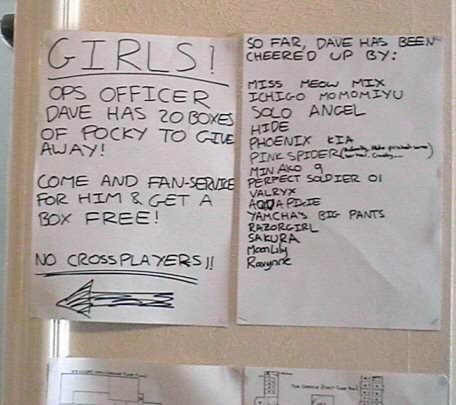 GIRLS!
OPS OFFICER
DAVE HAS 20 BOXES
OF POCKY TO GIVE
AWAY!
COME AND FAN-SERVICE
FOR HIM & GET A
BOX FREE!
NO CROSSPLAYERS!!
SO FAR, DAVE HAS BEEN
CHEERED UP BY:
MISS MEOW MIX
ICHIGO MOMOMIYU
SOLO ANGEL
HIDE
PHOENIX KIA
PINK SPIDER
MINAKO 9
PERFECT SOLDIER 01
VALRYX
AQUAPIXIE
YAMCHA'S BIG PANTS
RAZORGIRL
SAKURA
MoonLily
Ravynne